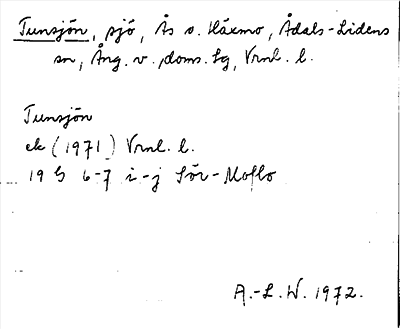 Tunsjön, sjö, Ås o. Häxmo, Ådals-Lidens
sn, Ång. v. doms. sg, Vrnl. l.
Tunsjön
ek (1971) Vrnl. l.
19 G 6-7 i-j Sör-Moflo
A.-L. W. 1972.